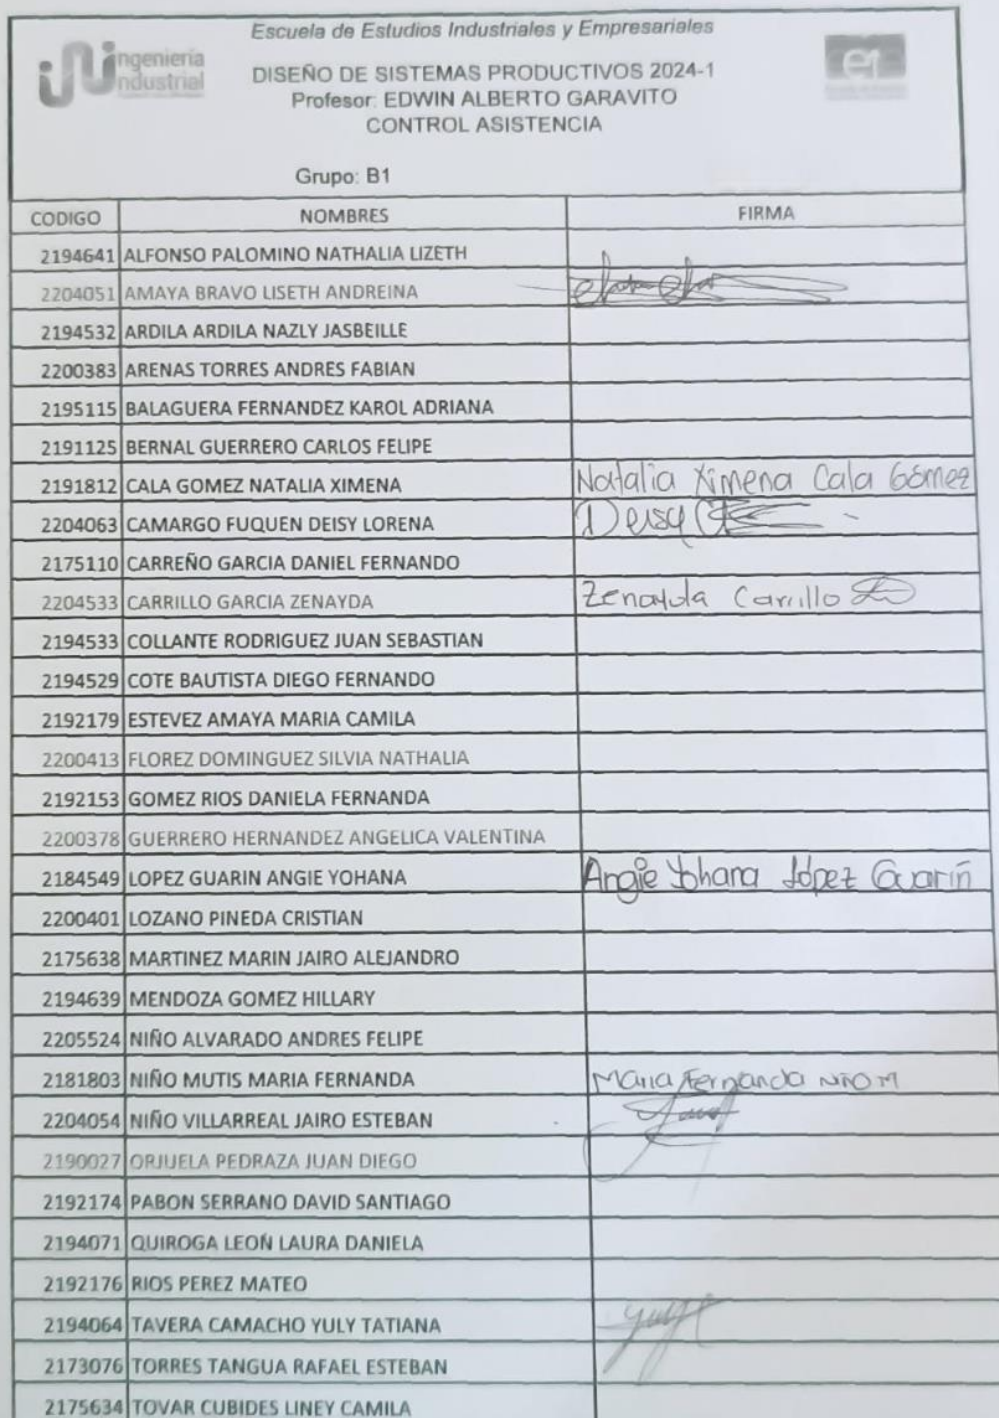 Escuela de Estudios Industriales y Empresariales
ingeniería
industrial
DISEÑO DE SISTEMAS PRODUCTIVOS 2024-1
Profesor: EDWIN ALBERTO GARAVITO
CONTROL ASISTENCIA
Grupo: B1
CODIGO NOMBRES FIRMA
2194641 ALFONSO PALOMINO NATHALIA LIZETH
2204051 AMAYA BRAVO LISETH ANDREINA
2194532 ARDILA ARDILA NAZLY JASBEILLE
2200383 ARENAS TORRES ANDRES FABIAN
2195115 BALAGUERA FERNANDEZ KAROL ADRIANA
2191125 BERNAL GUERRERO CARLOS FELIPE
2191812 CALA GOMEZ NATALIA XIMENA Natalia Ximena Cala Gómez
2204063 CAMARGO FUQUEN DEISY LORENA Deisy
2175110 CARREÑO GARCIA DANIEL FERNANDO
2204533 CARRILLO GARCIA ZENAYDA Zenayda Carrillo
2194533 COLLANTE RODRIGUEZ JUAN SEBASTIAN
2194529 COTE BAUTISTA DIEGO FERNANDO
2192179 ESTEVEZ AMAYA MARIA CAMILA
2200413 FLOREZ DOMINGUEZ SILVIA NATHALIA
2192153 GOMEZ RIOS DANIELA FERNANDA
2200378 GUERRERO HERNANDEZ ANGELICA VALENTINA
2184549 LOPEZ GUARIN ANGIE YOHANA Angie Yohana López Guarín
2200401 LOZANO PINEDA CRISTIAN
2175638 MARTINEZ MARIN JAIRO ALEJANDRO
2194639 MENDOZA GOMEZ HILLARY
2205524 NIÑO ALVARADO ANDRES FELIPE
2181803 NIÑO MUTIS MARIA FERNANDA Maria Fernanda Niño M
2204054 NIÑO VILLARREAL JAIRO ESTEBAN
2190027 ORJUELA PEDRAZA JUAN DIEGO
2192174 PABON SERRANO DAVID SANTIAGO
2194071 QUIROGA LEON LAURA DANIELA
2192176 RIOS PEREZ MATEO
2194064 TAVERA CAMACHO YULY TATIANA
2173076 TORRES TANGUA RAFAEL ESTEBAN
2175634 TOVAR CUBIDES LINEY CAMILA